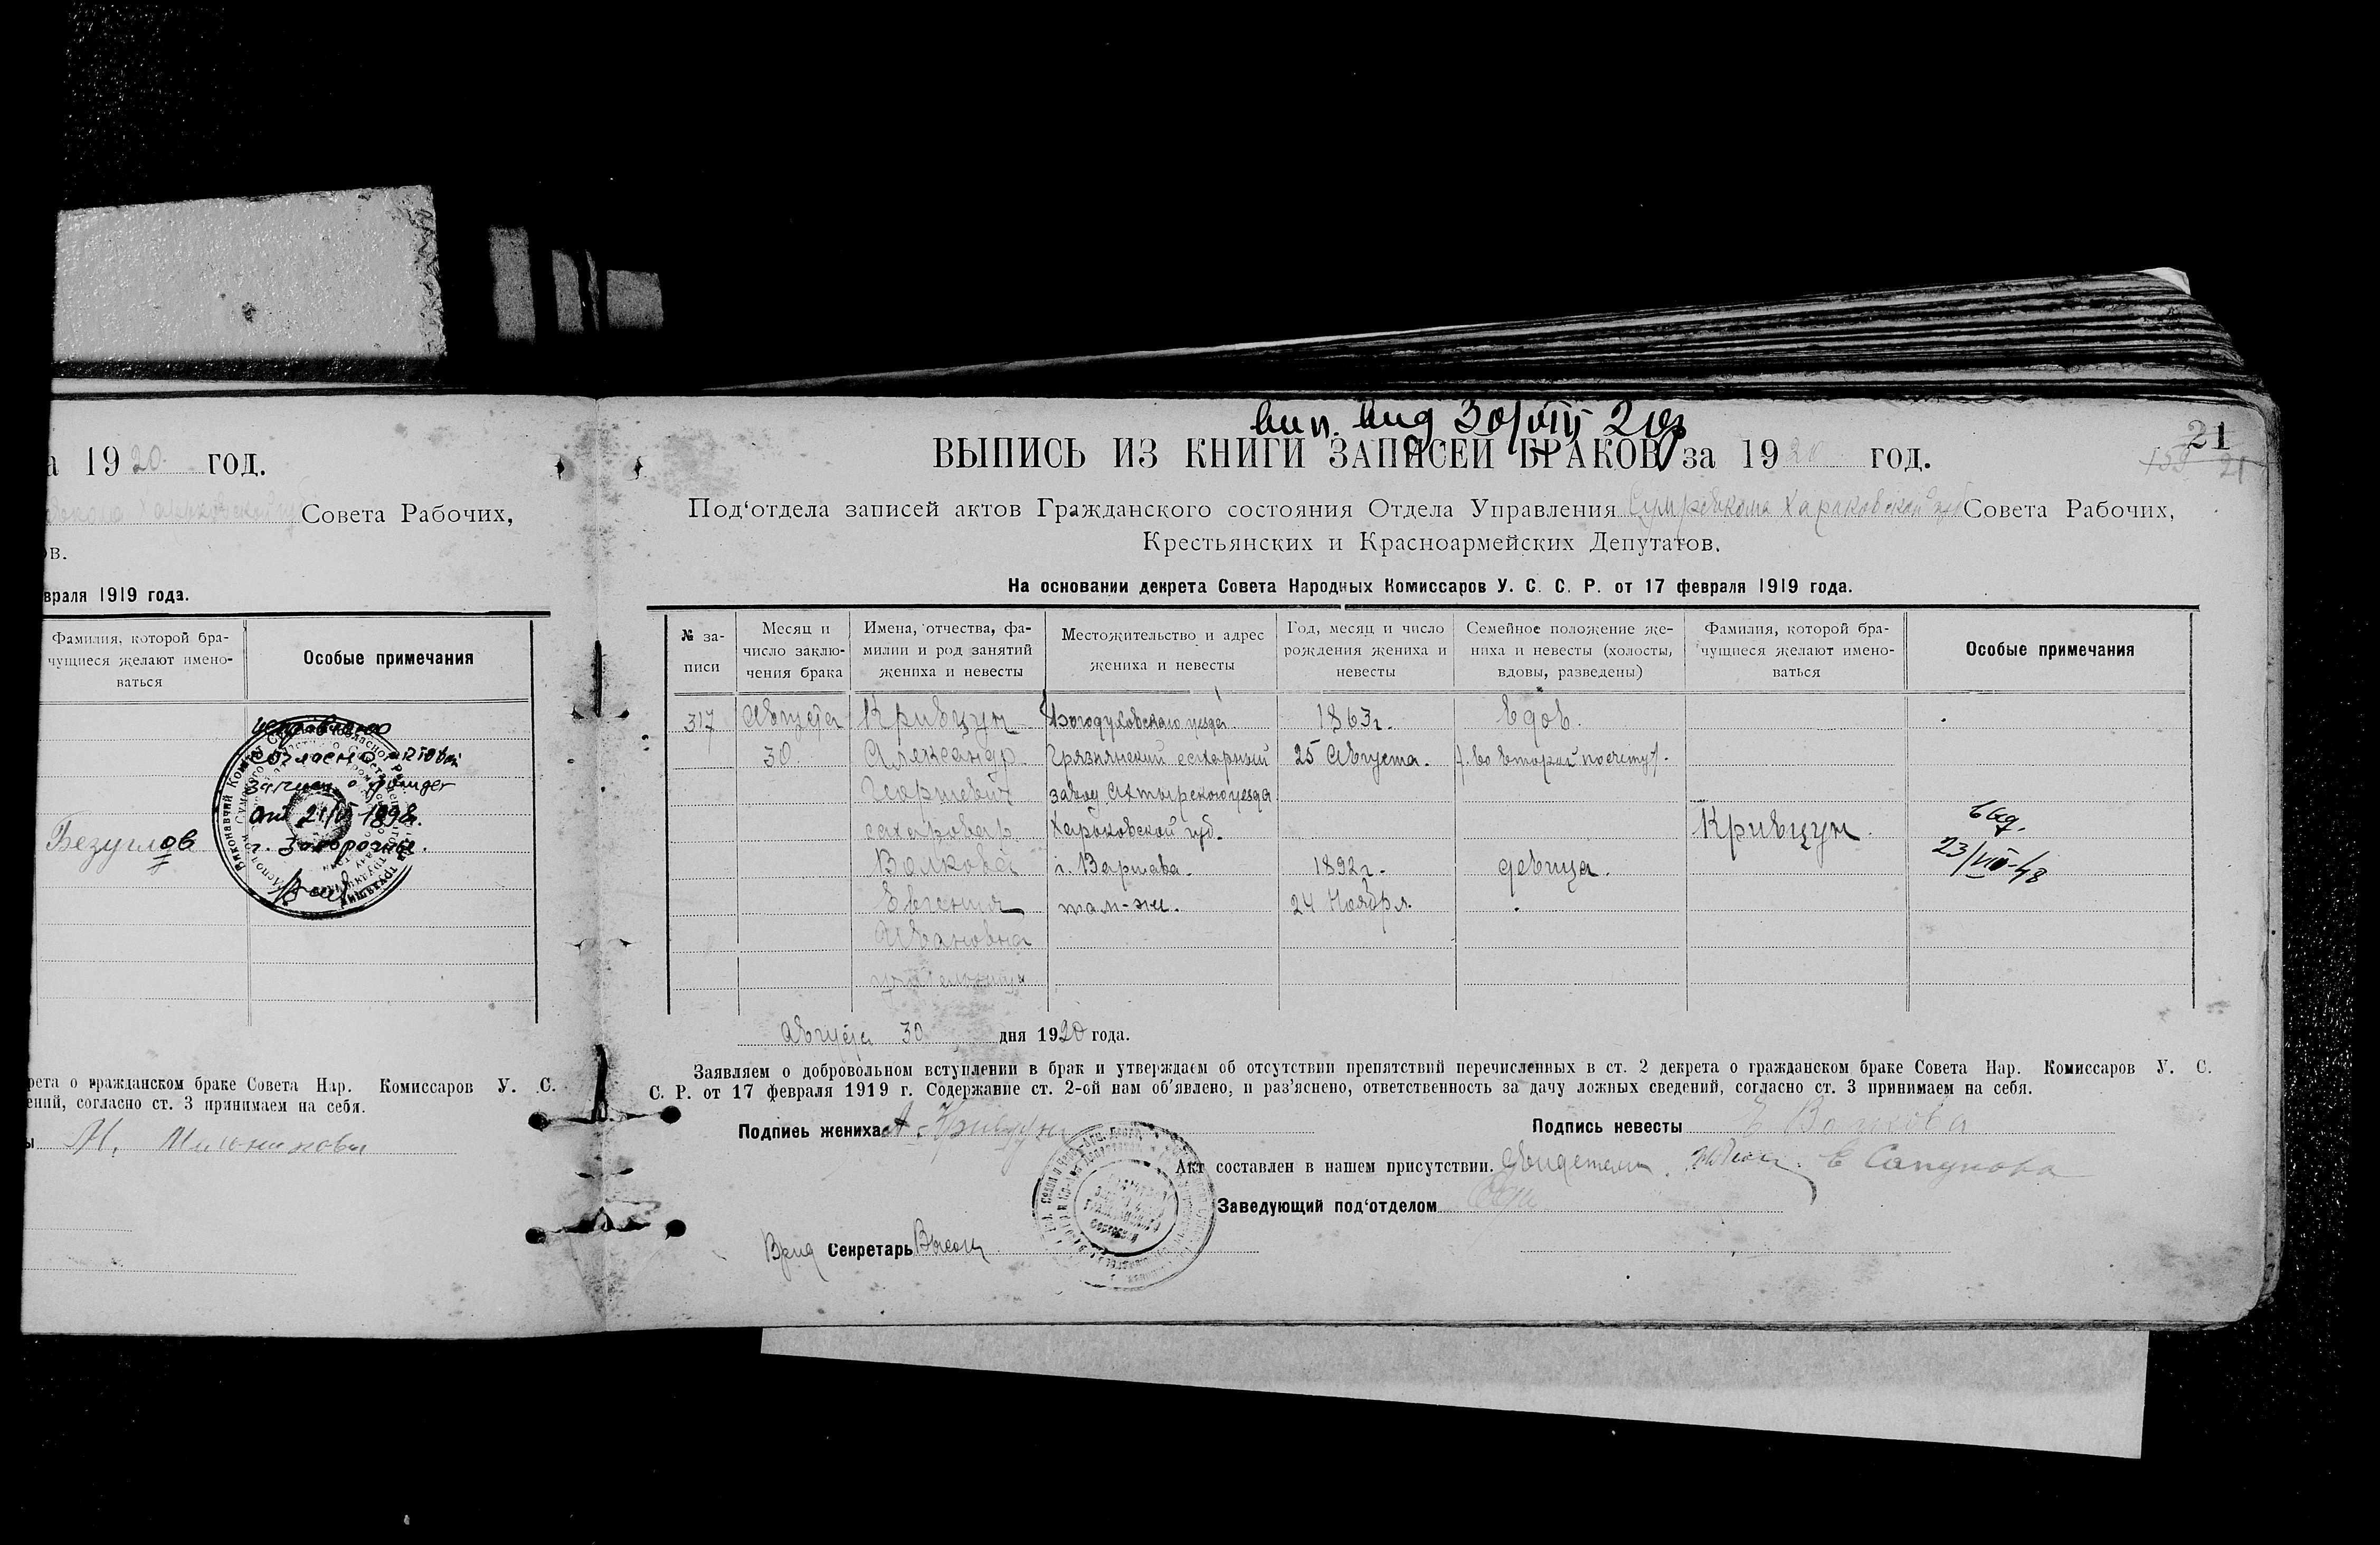 а 1920 год.
Совета Рабочих,
ов.
враля 1919 года.
Фамилия, которой бра-
чущиеся желают имено-
ваться
Особые примечания
согласно
от 1898г.
Безуглов
рета о гражданском браке Совета Нар. Комиссаров У. С.
ений, согласно ст. 3 принимаем на себя.
ы М. Мильникова
вид 30/VIII
21
ВЫПИСЬ ИЗ КНИГИ ЗАПИСЕЙ БРАКОВ за 1920 год.
21
Под'отдела записей актов Гражданского состояния Отдела Управления Харьковской губ Совета Рабочих,
Крестьянских и Красноармейских Депутатов.
На основании декрета Совета Народных Комиссаров У. С. С. Р. от 17 февраля 1919 года.
№ за-
писи
Месяц и
число заклю-
чения брака
Имена, отчества, фа-
милии и род занятий
жениха и невесты
Местожительство и адрес
жениха и невесты
Год, месяц и число
рождения жениха и
невесты
Семейное положение же-
ниха и невесты (холосты,
вдовы, разведены)
Фамилия, которой бра-
чущиеся желают имено-
ваться
Особые примечания
317 Августа Кривцун Богодуховского уезда 1863г. вдов.
30 Александр Грязнянский сахарный 25 Августа. во второй
Георгиевич завод Ахтырского уезда
сахаровар Харьковской губ. Кривцун
вид.
23/VIII-48
Волкова г. Варшава. 1892г. девица.
Евгения там-же. 24 Ноября.
Ивановна
учительница
Августа 30 дня 1920 года.
Заявляем о добровольном вступлении в брак и утверждаем об отсутствии препятствий перечисленных в ст. 2 декрета о гражданском браке Совета Нар. Комиссаров У. С.
С. Р. от 17 февраля 1919 г. Содержание ст. 2-ой нам об'явлено, и раз'яснено, ответственность за дачу ложных сведений, согласно ст. 3 принимаем на себя.
Подпись жениха А. Кривцун
Подпись невесты Е Волкова
Акт составлен в нашем присутствии. Свидетели Е Сапунова
Заведующий под'отделом
Врид Секретарь